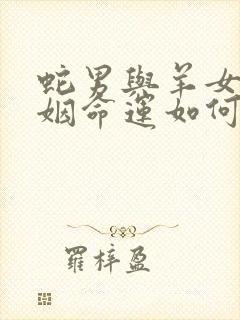 蛇男與羊女
姻命運如何
羅梓盈